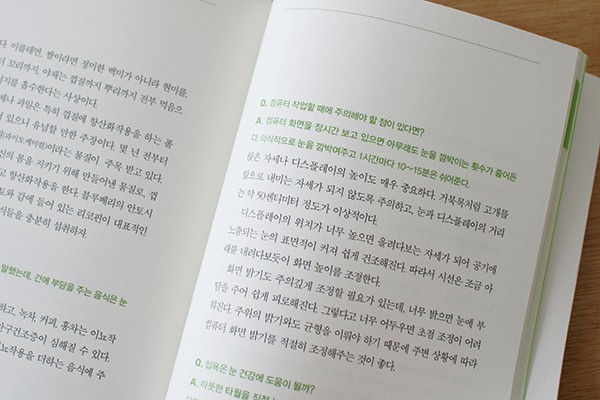 다. 이를테면, 쌀이라면 정미한 백미가 아니라 현미를,
꼬리까지, 야채는 껍질까지 뿌리까지 전부 먹음으
너지를 흡수한다는 사상이다.
채나 과일은 특히 껍질에 항산화작용을 하는 물
있으니 유념할 만한 주장이다. 몇 년 전부터
파이토케미컬)이라는 물질이 주목 받고 있다.
신의 몸을 지키기 위해 만들어낸 물질로, 껍
고 항산화작용을 한다. 블루베리의 안토시
토와 감에 들어 있는 리코펜이 대표적인
식들을 충분히 섭취하자.
말했는데, 간에 부담을 주는 음식은 눈
하고, 녹차, 커피, 홍차는 이뇨작
안구건조증이 심해질 수 있다.
이뇨작용을 더하는 음식에 주
Q. 컴퓨터 작업할 때에 주의해야 할 점이 있다면?
A. 컴퓨터 화면을 장시간 보고 있으면 아무래도 눈을 깜박이는 횟수가 줄어든
다. 의식적으로 눈을 깜박여주고 1시간마다 10~15분은 쉬어준다.
앉은 자세나 디스플레이의 높이도 매우 중요하다. 거북목처럼 고개를
앞으로 내미는 자세가 되지 않도록 주의하고, 눈과 디스플레이의 거리
는 약 50센티미터 정도가 이상적이다.
디스플레이의 위치가 너무 높으면 올려다보는 자세가 되어 공기에
노출되는 눈의 표면적이 커져 쉽게 건조해진다. 따라서 시선은 조금 아
래를 내려다보듯이 화면 높이를 조정한다.
화면 밝기도 주의깊게 조정할 필요가 있는데, 너무 밝으면 눈에 부
담을 주어 쉽게 피로해진다. 그렇다고 너무 어두우면 초점 조정이 어려
워진다. 주위의 밝기와도 균형을 이뤄야 하기 때문에 주변 상황에 따라
컴퓨터 화면 밝기를 적절히 조정해주는 것이 좋다.
Q. 입욕은 눈 건강에 도움이 될까?
A. 따뜻한 타월을 직접